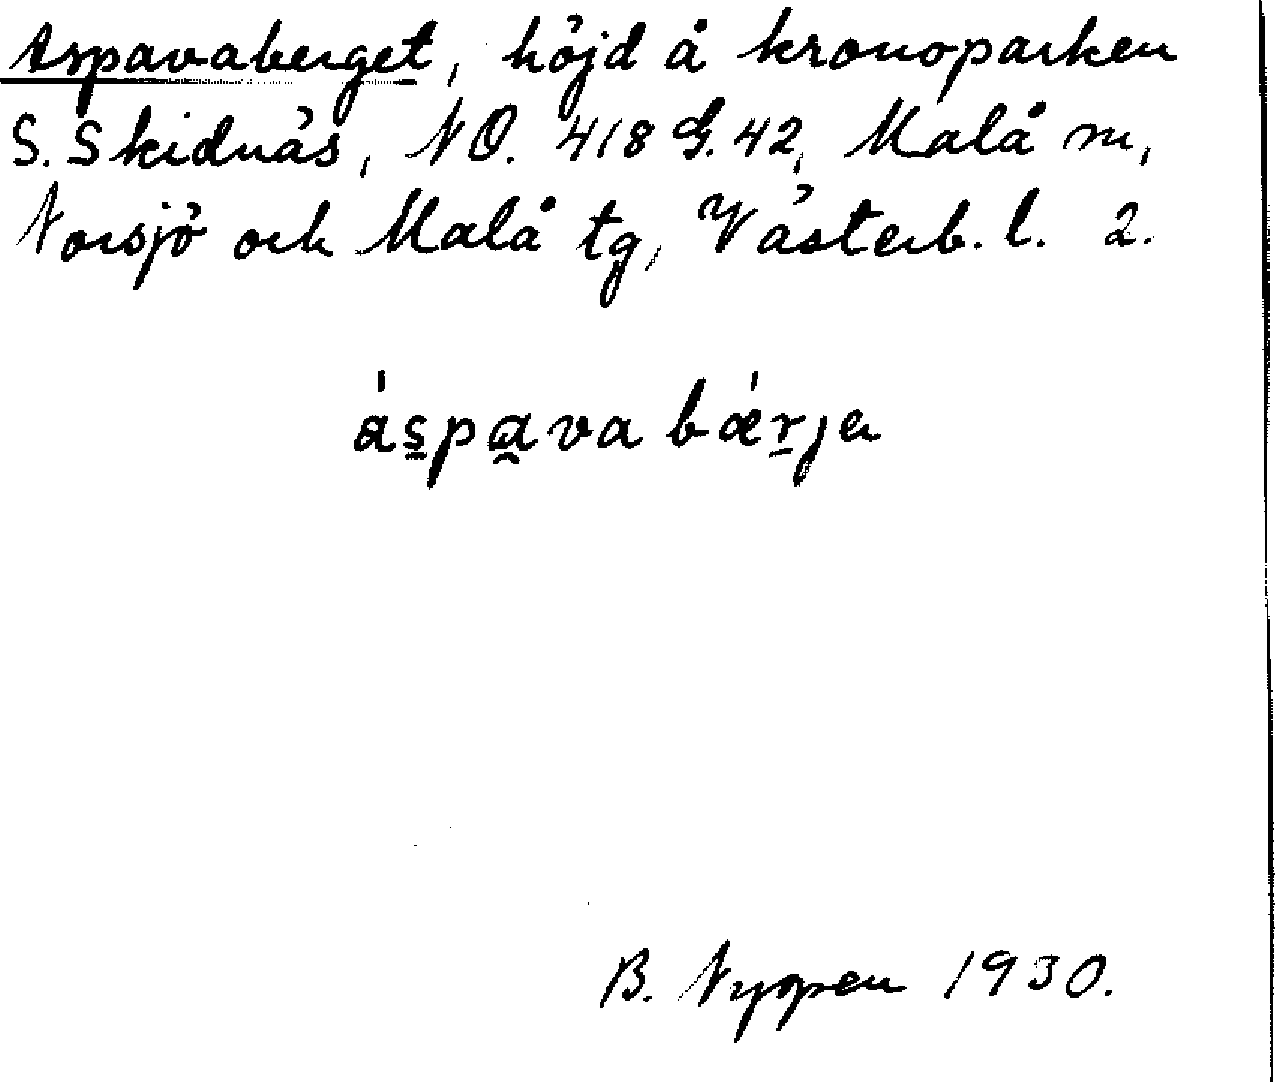 Aspavaberget, höjd å kronoparken
S. Skidnäs, NO. 418 G. 42, Malå sn,
Norsjö och Malå tg, Västerb. l. 2.
ás̱pa̯va bǽṟja
B. Nyopen 1930.